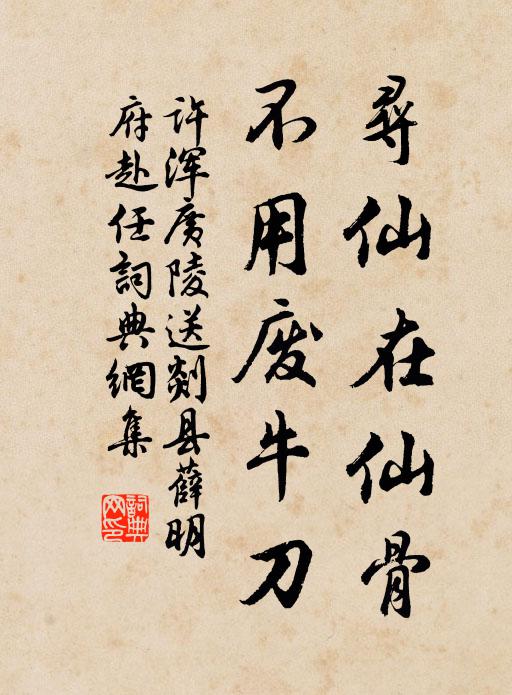 尋仙在仙骨
不用废牛刀
许浑廣陵送剡县薛明
府赴任詞典網集
詞典
网印